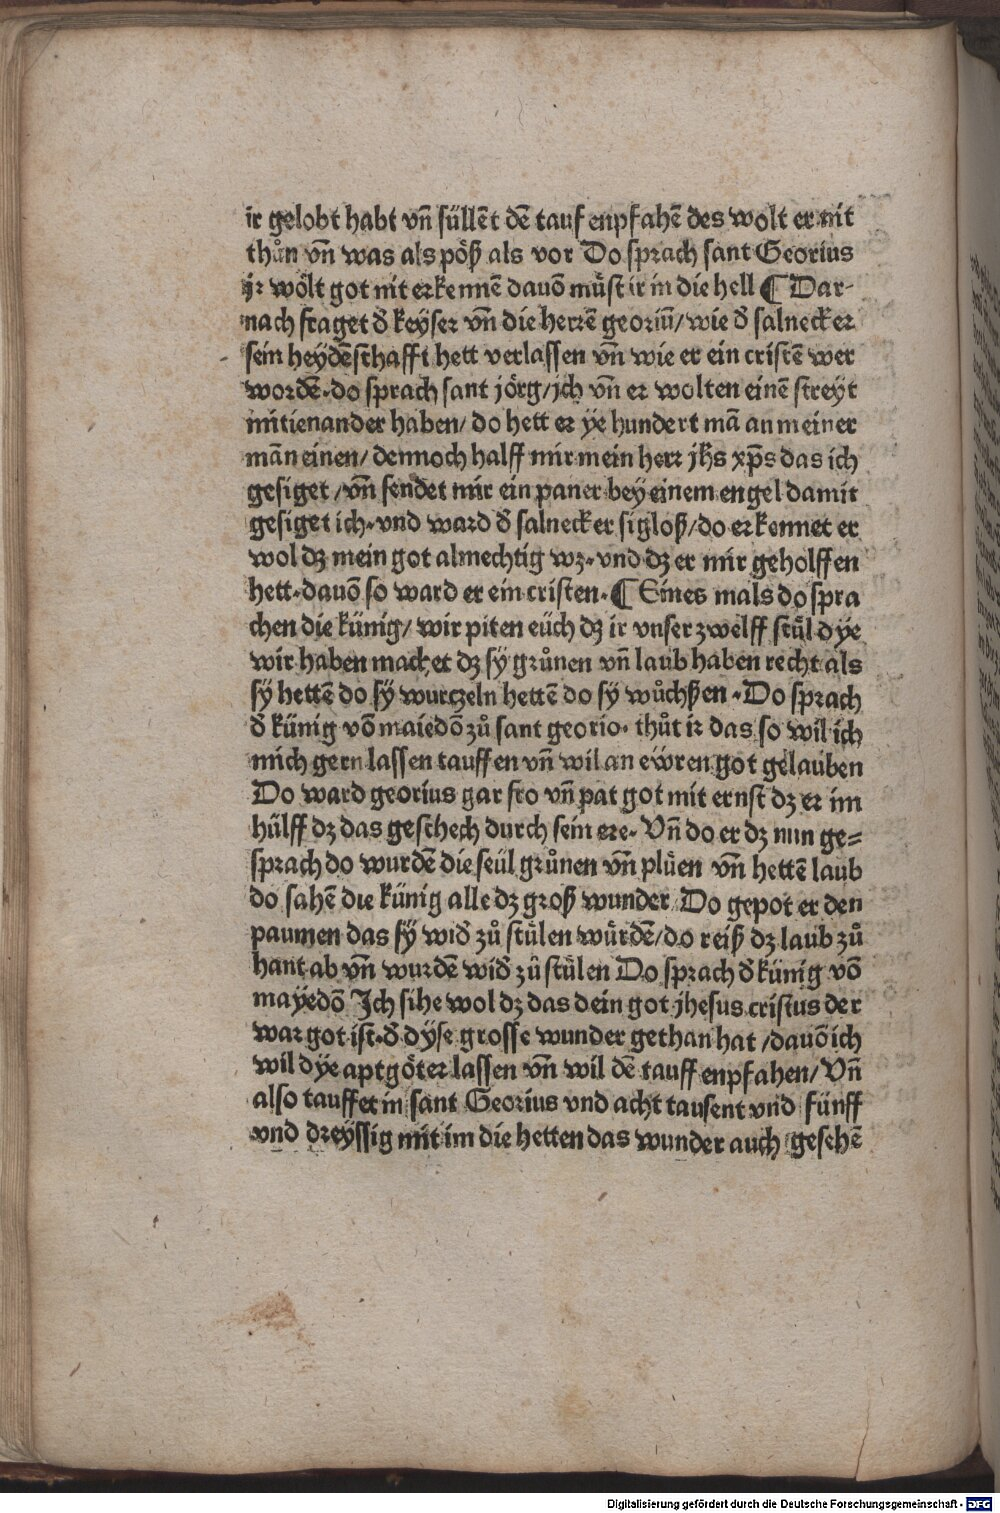 ir gelobt habt vn̄ süllēt dē tauf enpfahē des wolt er nit
thůn vn̄ was als pöß als vor Do sprach sant Georius
jr wölt got nit erkennē dauō müst ir in die hell ¶ Dar-
nach fraget d̄ keyser vn̄ die herrē georiū/ wie d̄ salnecker
sein heydēschafft hett verlassen vn̄ wie er ein cristē wer
wordē. do sprach sant jörg/ jch vn̄ er wolten einē streyt
mitienander haben/ do hett er ye hundert mā an meiner
mān einen/ dennoch halff mir mein herr jh̄s xp̄s das ich
gesiget /vn̄ sendet mir ein paner bey einem engel damit
gesiget ich. vnd ward d̄ salnecker sigloß/ do erkennet er
wol dz mein got almechtig wz. vnd dz er mir geholffen
hett. dauō so ward er ein cristen. ¶ Eines mals do spra
chen die künig/ wir piten eüch dz ir vnser zwelff stül dye
wir haben machet dz sy grůnen vn̄ laub haben recht als
sy hettē do sy wurtzeln hettē do sy wůchßen. Do sprach
d̄ künig vō maiedō zů sant georio. thůt ir das so wil ich
mich gern lassen tauffen vn̄ wil an ewren got gelauben
Do ward georius gar fro vn̄ pat got mit ernst dz er im
hülff dz das geschech durch sein ere. Vn̄ do er dz nun ge=
sprach do wurdē die seül grůnen vn̄ plüen vn̄ hettē laub
do sahē die künig alle dz groß wunder Do gepot er den
paumen das sy wid̄ zů stülen würdē/ do reiß dz laub zů
hant ab vn̄ wurdē wid̄ zů stülen Do sprach d̄ künig vō
mayedō Ich sihe wol dz das dein got jhesus cristus der
war got ist. d̄ dyse grosse wunder gethan hat /dauō ich
wil dye aptgöter lassen vn̄ wil dē tauff enpfahen/ Vn̄
also tauffet in sant Georius vnd acht tausent vnd fünff
vnd dreyssig mit im die hetten das wunder auch gesehē
Digitalisierung gefördert durch die Deutsche Forschungsgemeinschaft - DFG